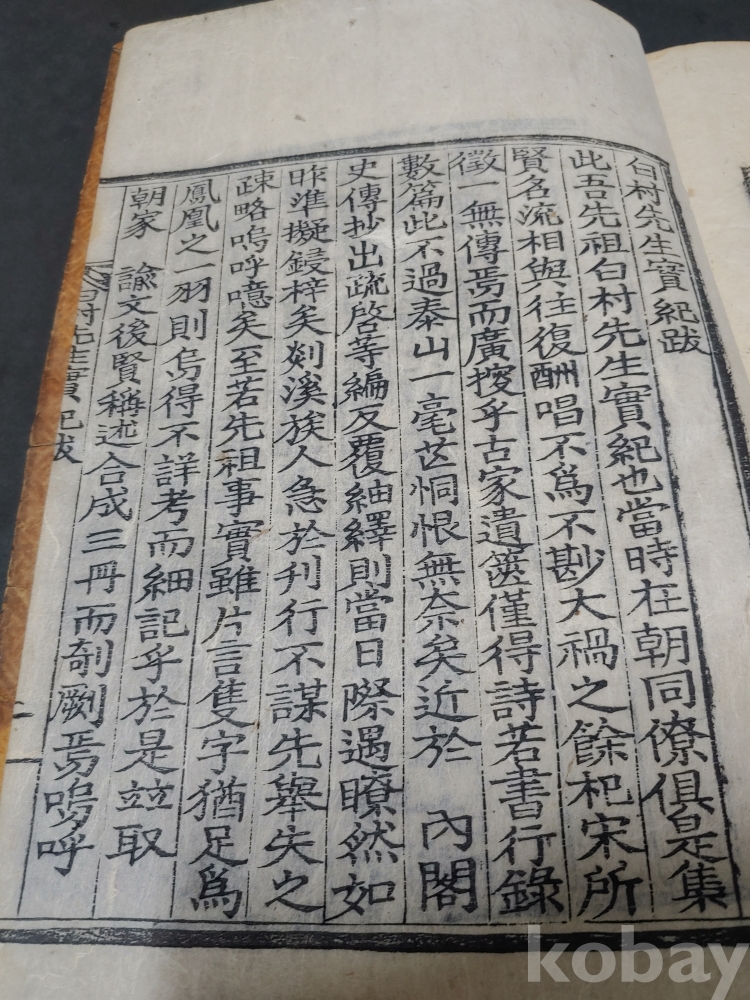 白村先生實紀跋
此吾先祖白村先生實紀也當時在朝同僚俱是集
賢名流相與往復酬唱不爲不尠大禍之餘杞宋所
徵一無傳焉而廣搜乎古家遺篋僅得詩若書行錄
數篇此不過泰山一毫芒恫恨無奈矣近於 內閣
史傳抄出疏啓等編反覆紬繹則當日際遇瞭然如
昨準擬鋟梓矣剡溪族人急於刊行不謀先舉失之
疎略嗚呼噫矣至若先祖事實雖片言隻字猶足爲
鳳凰之一羽則烏得不詳考而細記乎於是竝取
朝家 諭文後賢稱述合成三冊而剞劂焉嗚呼
白村先生實紀跋
二
kobay